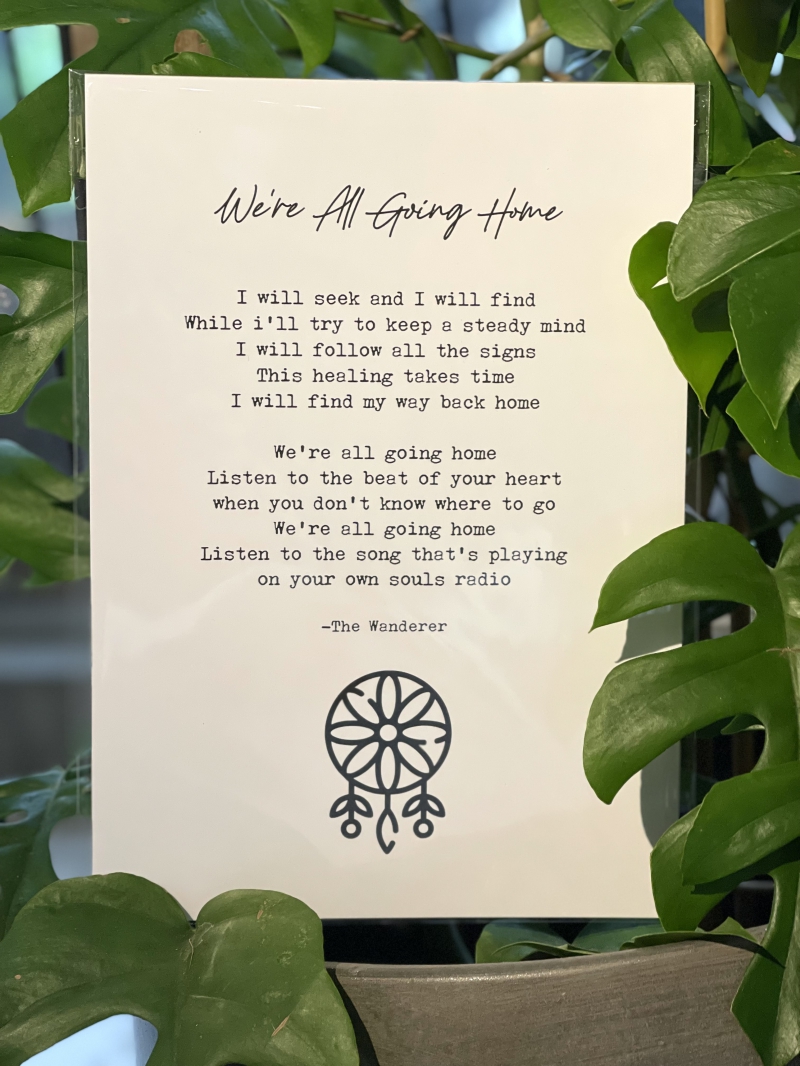 We're All Going Home
I will seek and I will find
While i'll try to keep a steady mind
I will follow all the signs
This healing takes time
I will find my way back home
We're all going home
Listen to the beat of your heart
when you don't know where to go
We're all going home
Listen to the song that's playing
on your own souls radio
-The Wanderer